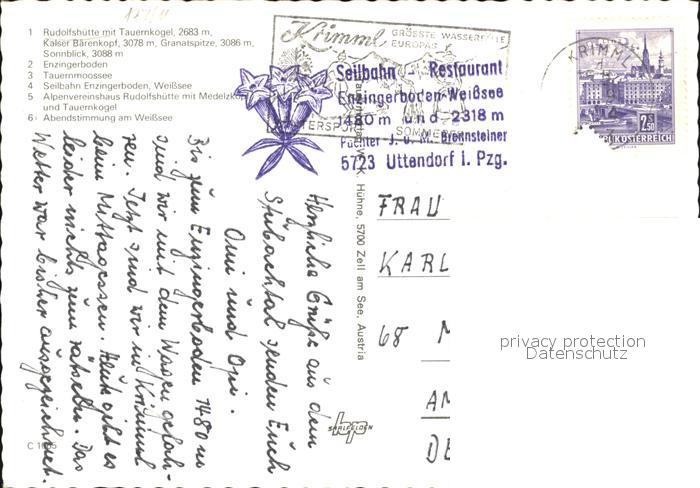 1 Rudolfshütte mit Tauernkogel, 2683 m,
Kalser Bärenkopf, 3078 m, Granatspitze, 3086 m,
Sonnblick, 3088 m
2 Enzingerboden
3 Tauernmoossee
4 Seilbahn Enzingerboden, Weißsee
5 Alpenvereinshaus Rudolfshütte mit Medelzkopf
und Tauernkogel
6 Abendstimmung am Weißsee
Krimml
GRÖSSTE WASSERFÄLLE
EUROPAS
WINTERSPORT
SOMMER
Seilbahn - Restaurant
Enzingerboden-Weißsee
1480 m und 2318 m
Pächter J. u. M. Brennsteiner
5723 Uttendorf i. Pzg.
KRIMML
2.50
REPUBLIK ÖSTERREICH
Herzliche Grüße aus dem
Stubachtal senden Euch
Omi und Opi.
Bis zum Enzingerboden 1480 m
sind wir mit dem Wagen gefah-
ren. Jetzt sind wir in Krimml
beim Mittagessen. Heute geht es
leider nichts zum rätseln. Das
Wetter war bisher ausgezeichnet.
Hühne, 5700 Zell am See, Austria
FRAU
KARL
68
AM
DE
SAALFELDEN
privacy protection
Datenschutz